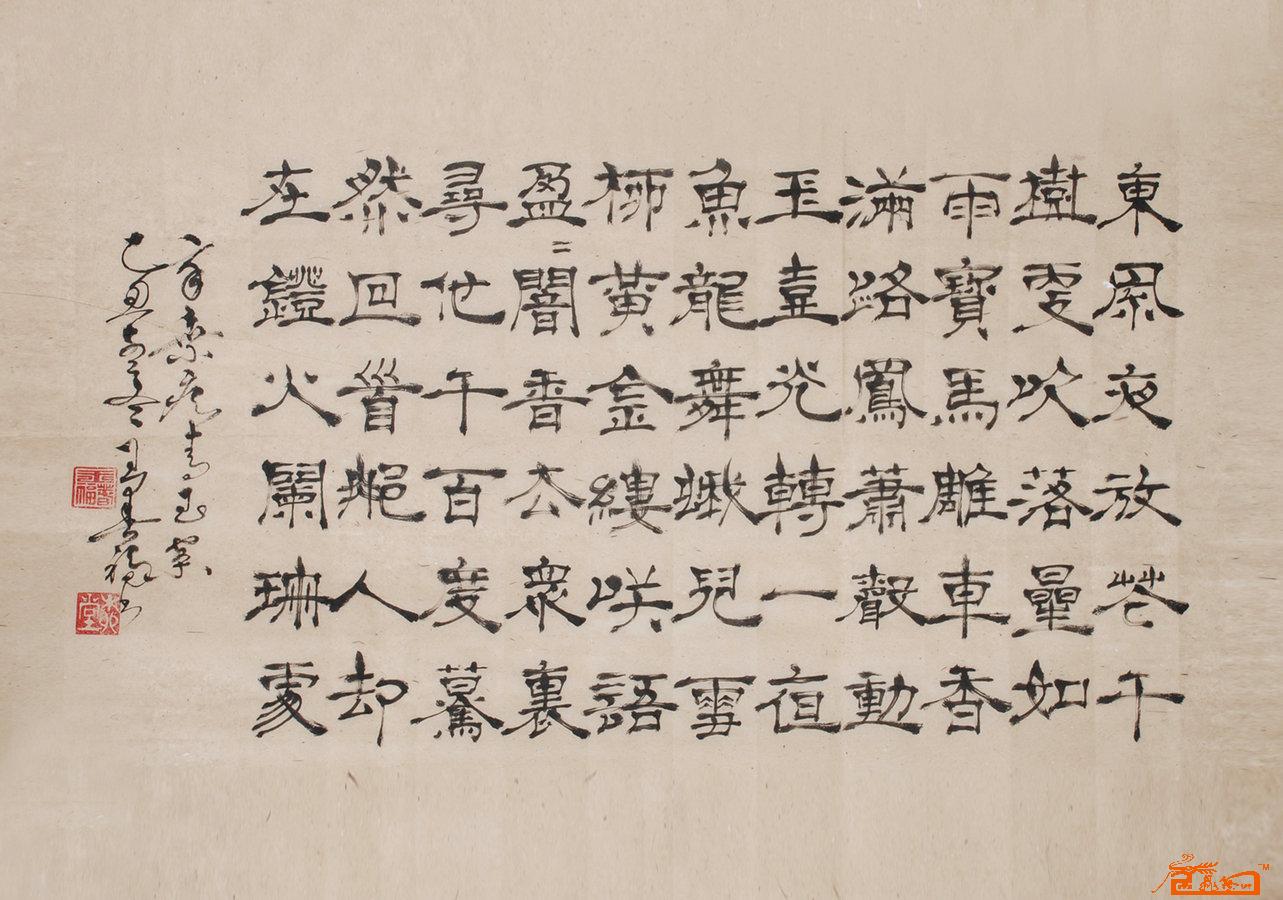 東風夜放花千
樹更吹落星如
雨寶馬雕車香
滿路鳳簫聲動
玉壺光轉一亱
魚龍舞蛾兒雪
柳黃金縷咲語
盈〻闇香去眾裏
尋他千百度驀
然回首那人却
在鐙火闌珊處
辛棄疾青玉案
己丑